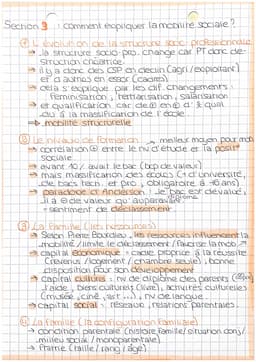 Section 3 : comment expliquer la mobilité sociale ?
① L'évolution de la structure socio professionnelle
→ la structure socio pro. change car PT donc de-
struction créatrice.
→ il y a donc des CSP en déclin (agri/exploitant)
et d'autres en essor (cadres)
→ cela s'explique par les dif. changements :
féminisation, tertiarisation, salarisation
et qualification car de ⊕ en ⊕ d' quali
du à la massification de l'école
→ mobilité structurelle
② Le niveau de formation → meilleur moyen pour mob
→ corrélation ⊕ entre le nv d'étude et la posit°
sociale
→ avant 70/ avait le bac (bcp de valeur)
→ mais massification des écoles (↑ d'université,
de bacs tech. et pro, obligatoire à 16 ans)
→ paradoxe d'Anderson : le bac est dévalué,
il a ⊖ de valeur qu'auparavant
→ sentiment de déclassement
③ La Famille (les ressources)
→ Selon Pierre Bourdieu, les ressources influencent la
mobilité / limite le déclassement / favorise la mob ↗
→ capital économique : cadre propice à la réussite
(revenus / logement / chambre seule), bonne
disposition pour son développement
→ capital culturel : nv de diplôme des parents
l'aide, biens culturels (livre), activités culturelles
(musée, ciné, art...), nv de langue.
→ capital social : réseaux, relations parentales.
④ La Famille (la configuration familiale)
→ condition parentale (histoire famille/situation conj/
milieu social / monoparentale)
→ fratrie (taille / rang / âge)